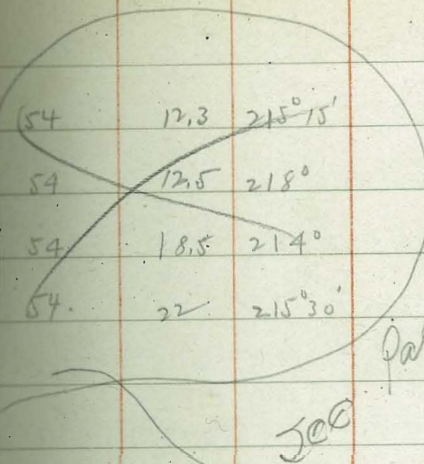 54 12.3 215° 15'
54 12.5 218°
54 18.5 214°
54. 22 215° 30'
Pa
See